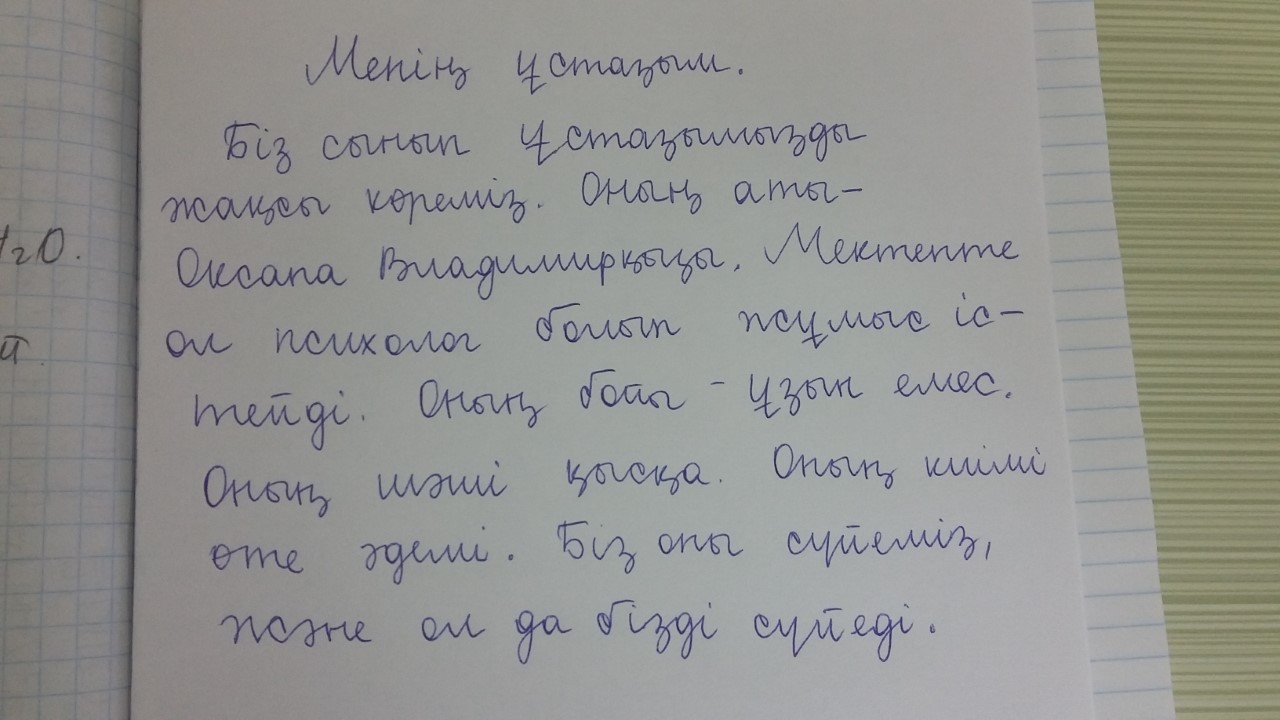 Менің ұстазым.
Біз сынып ұстазымызды
жақсы көреміз. Оның аты-
Оксана Владимирқызы. Мектепте
H2O.
ол психолог болып жұмыс іс-
й.
тейді. Оның бойы - ұзын емес.
Оның шәші қысқа. Оның киімі
өте әдемі. Біз оны сүйеміз,
және ол да бізді сүйеді.